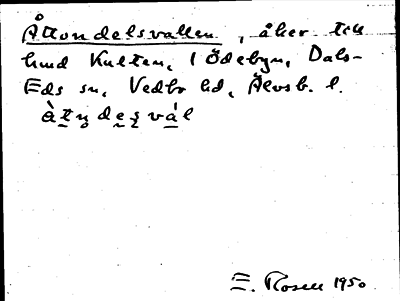 Åttondelsvallen, åker till
hmd Kulten, i Ödebyn, Dals-
Eds sn, Vedbo hd, Älvsb. l.
àtn̥desvál
E. Rosell 1950